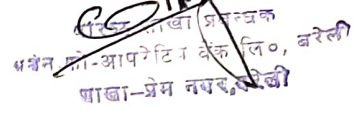 शाखा प्रबन्धक
अर्बन को-आपरेटिव बैंक लि०, बरेली
शाखा-प्रेम नगर, बरेली